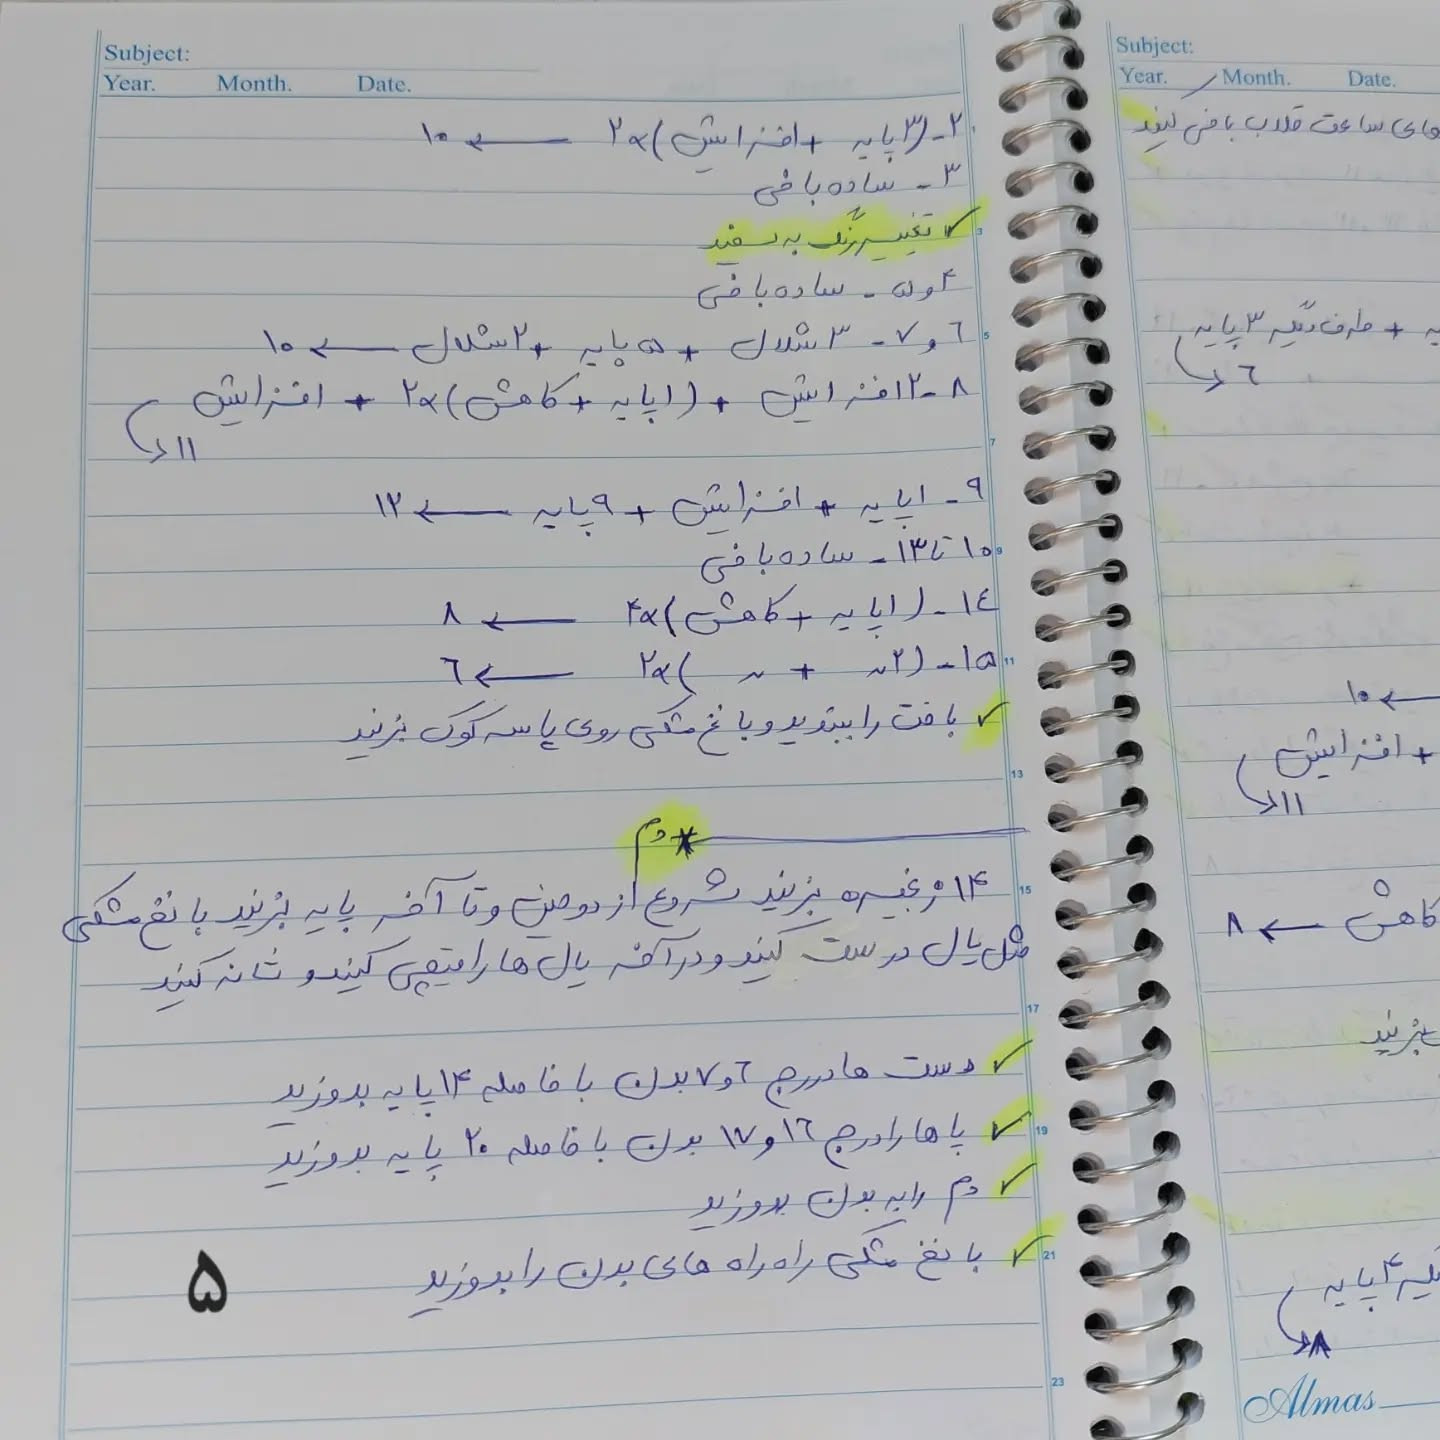 Subject:
Year. Month. Date.
۲- (۳ پایه + افزایش) ×۲ ← ۱۰
۳- ساده بافی
✓ تغییر رنگ به سفید
۴ و ۵- ساده بافی
۶ و ۷- ۳ شلال + ۵ پایه + ۲ شلال ← ۱۰
۸- ۲ افزایش + (۱ پایه + کاهش) ×۲ + افزایش
← ۱۱
۹- ۱ پایه + افزایش + ۹ پایه ← ۱۲
۱۰ تا ۱۳- ساده بافی
۱۴- (۱ پایه + کاهش) ×۴ ← ۸
۱۵- (۲ ~ + ~) ×۲ ← ۶
✓ بافت را ببندید و با نخ مشکی روی پاسه کوک بزنید
* دم
۱۴ زنجیره بزنید شروع از دومین و تا آخر پایه بزنید با نخ مشکی
مثل یال درست کنید و در آخر یال ها را قیچی کنید و شانه کنید
✓ دست ها در رج ۶ و ۷ بدن با فاصله ۱۴ پایه بدوزید
✓ پاها را در رج ۱۶ و ۱۷ بدن با فاصله ۲۰ پایه بدوزید
✓ دم را به بدن بدوزید
✓ با نخ مشکی راه راه های بدن را بدوزید
۵
Subject:
Year. Month. Date.
های ساعت قلاب بافی کنید
+ طرف دیگر ۳ پایه
← ۶
← ۱۰
+ افزایش
← ۱۱
کاهش ← ۸
بزنید
۴ پایه
← ۸
Almas